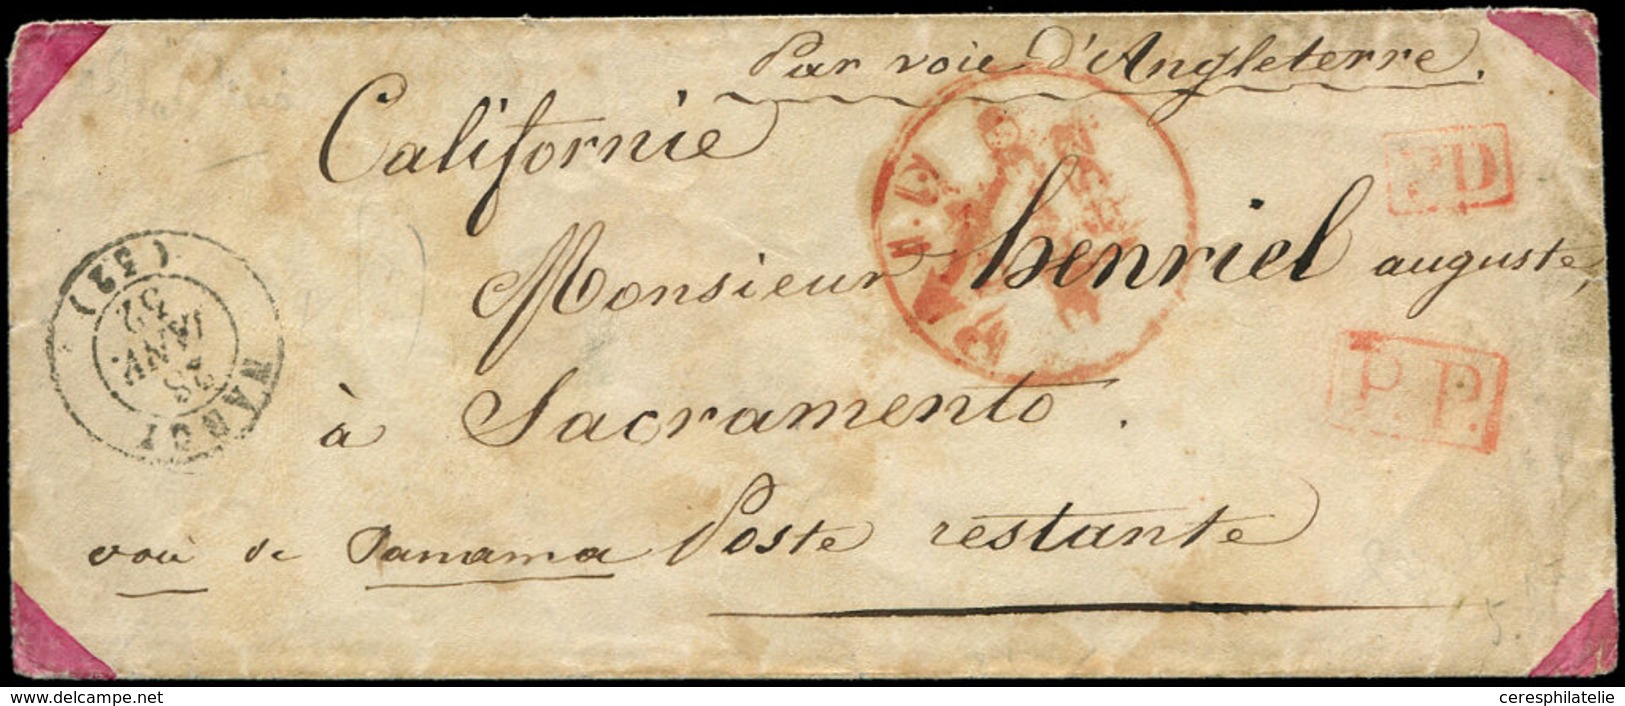 Par voie d'Angleterre.
Californie
Monsieur henriel auguste,
à Sacramento.
voie de Panama Poste restante
PD
P.P.
(32)
28
JANV.
52
5.
www.delcampe.net
ceresphilatelie